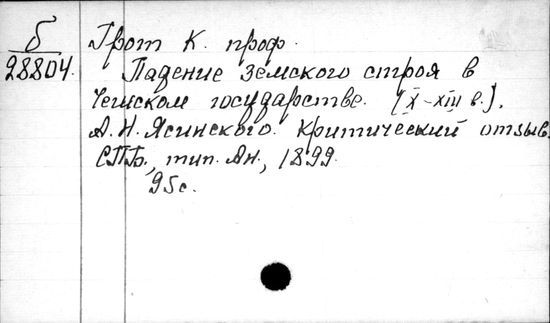 б
28804.
Грот К. проф.
Падение земского строя в
Чешском государстве. (X-XIII в.).
А. Н. Ясинского. Критический отзыв.
СПБ., тип. Ан., 1899.
95с.